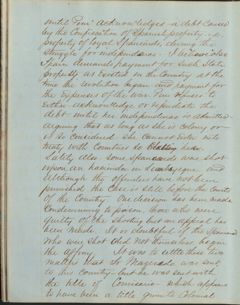 until Peru acknowledges a debt caused
by the Confiscation of Spanish property, i.e.
property of loyal Spaniards, during the
struggle for independence.
Spain demands payment for such State
property as existed in the Country at the
time the revolution began and payment for
the expenses of the war. Peru refuses to
either acknowledge or repudiate the
debt until her independence is admitted
arguing that as long as she is Colony or
is so Considered She Cannot enter into
treaty with Countries so
Lately also some Spaniards was shot
upon an hacienda in
Although the offenders have not been
punished the Case is still before the Courts
of the Country. One decision has been made
Condemning to prison those who were
guilty of the shooting but an appeal has
been made. It is doubtful if the Spaniards
who were shot did not themselves begin
the affray. It was to settle these two
matters that Mr Mazarredo was sent
to his Country but he was sent with
the title of Comisario which appears
to have been a title given to Colonial